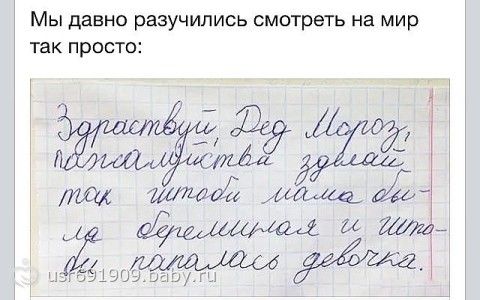 Мы давно разучились смотреть на мир
так просто:
Здраствуй, Дед Мороз,
пажалуйства зделай
так штоби мама бы-
ла береминая и што-
би папалась девочка.
usr691909.baby.ru